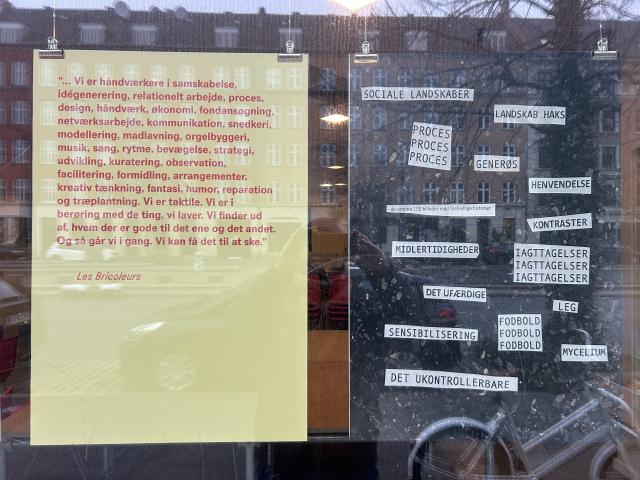 “... Vi er håndværkere i samskabelse,
idégenerering, relationelt arbejde, proces,
design, håndværk, økonomi, fondansøgning,
netværksarbejde, kommunikation, snedkeri,
modellering, madlavning, orgelbyggeri,
musik, sang, rytme, bevægelse, strategi,
udvikling, kuratering, observation,
facilitering, formidling, arrangementer,
kreativ tænkning, fantasi, humor, reparation
og træplantning. Vi er taktile. Vi er i
berøring med de ting, vi laver. Vi finder ud
af, hvem der er gode til det ene og det andet.
Og så går vi i gang. Vi kan få det til at ske.”
Les Bricoleurs
SOCIALE LANDSKABER
LANDSKAB HAKS
PROCES
PROCES
PROCES
GENERØS
HENVENDELSE
de samme 100 billeder med forskellige historier
KONTRASTER
MIDLERTIDIGHEDER
IAGTTAGELSER
IAGTTAGELSER
IAGTTAGELSER
DET UFÆRDIGE
LEG
FODBOLD
FODBOLD
FODBOLD
SENSIBILISERING
MYCELIUM
DET UKONTROLLERBARE